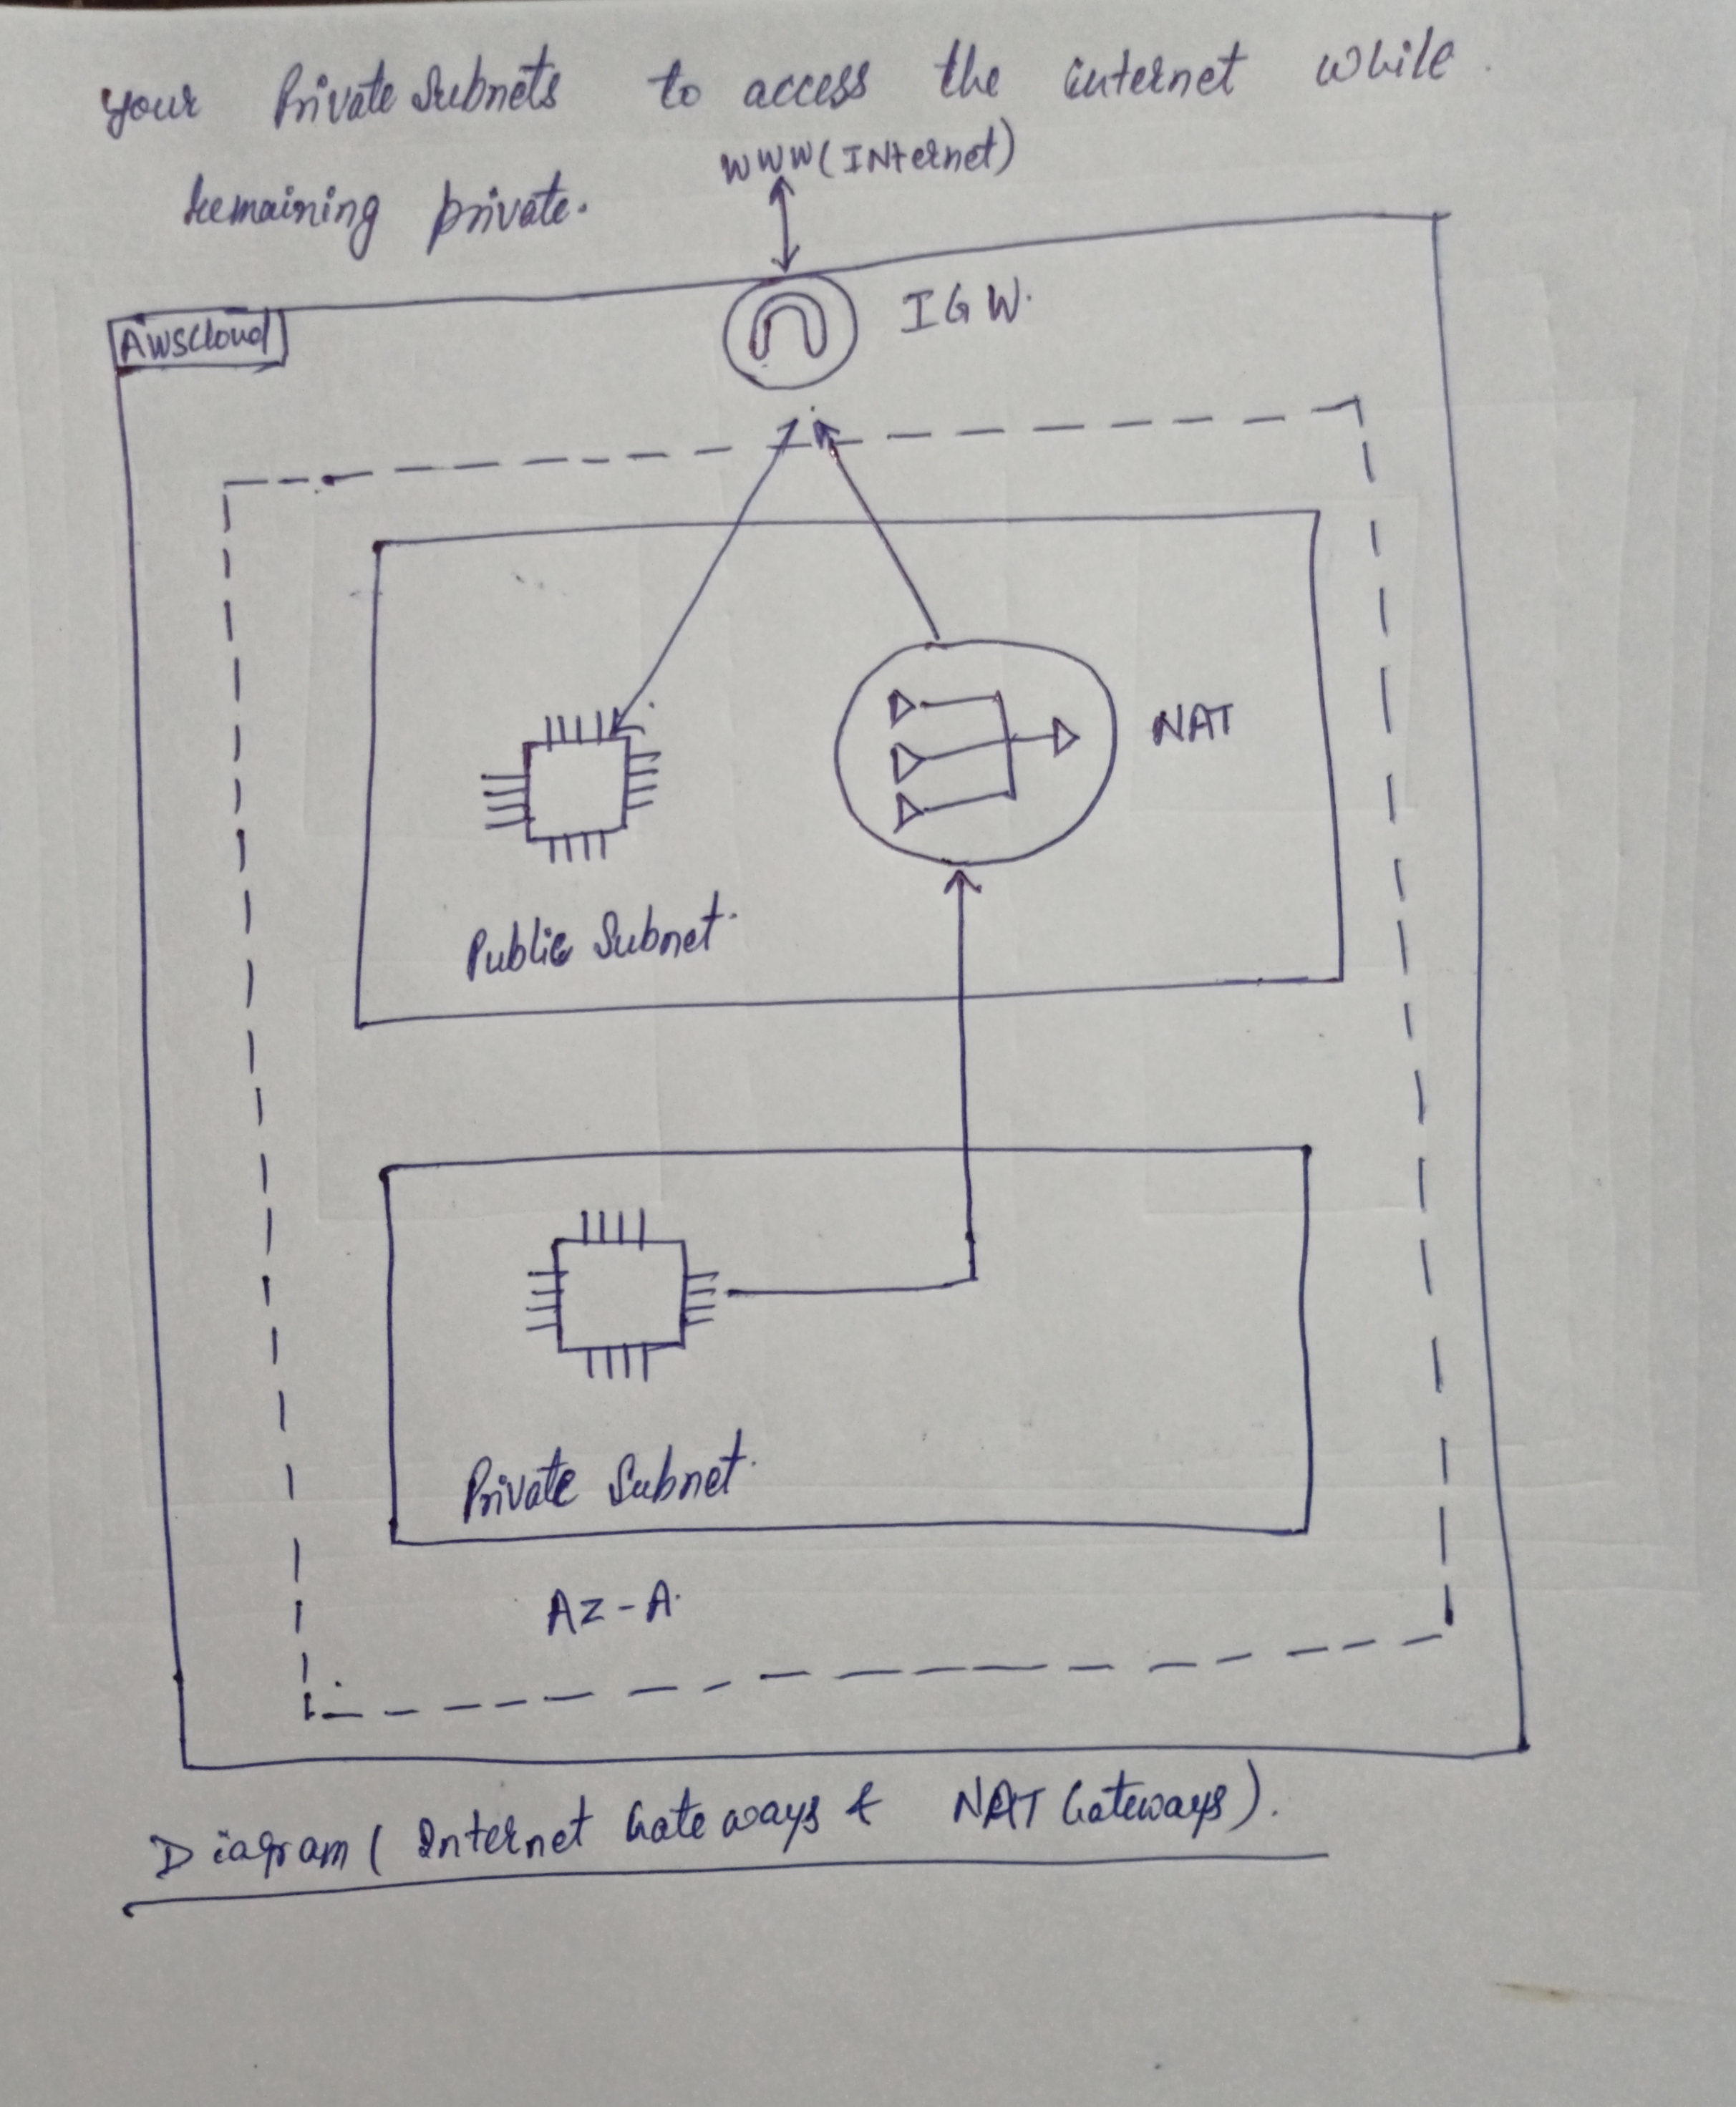 your Private Subnets to access the internet while
remaining private.
WWW (INternet)
AWSCloud
IGW.
NAT
Public Subnet.
Private Subnet.
AZ-A.
Diagram ( Internet Gateways & NAT Gateways).